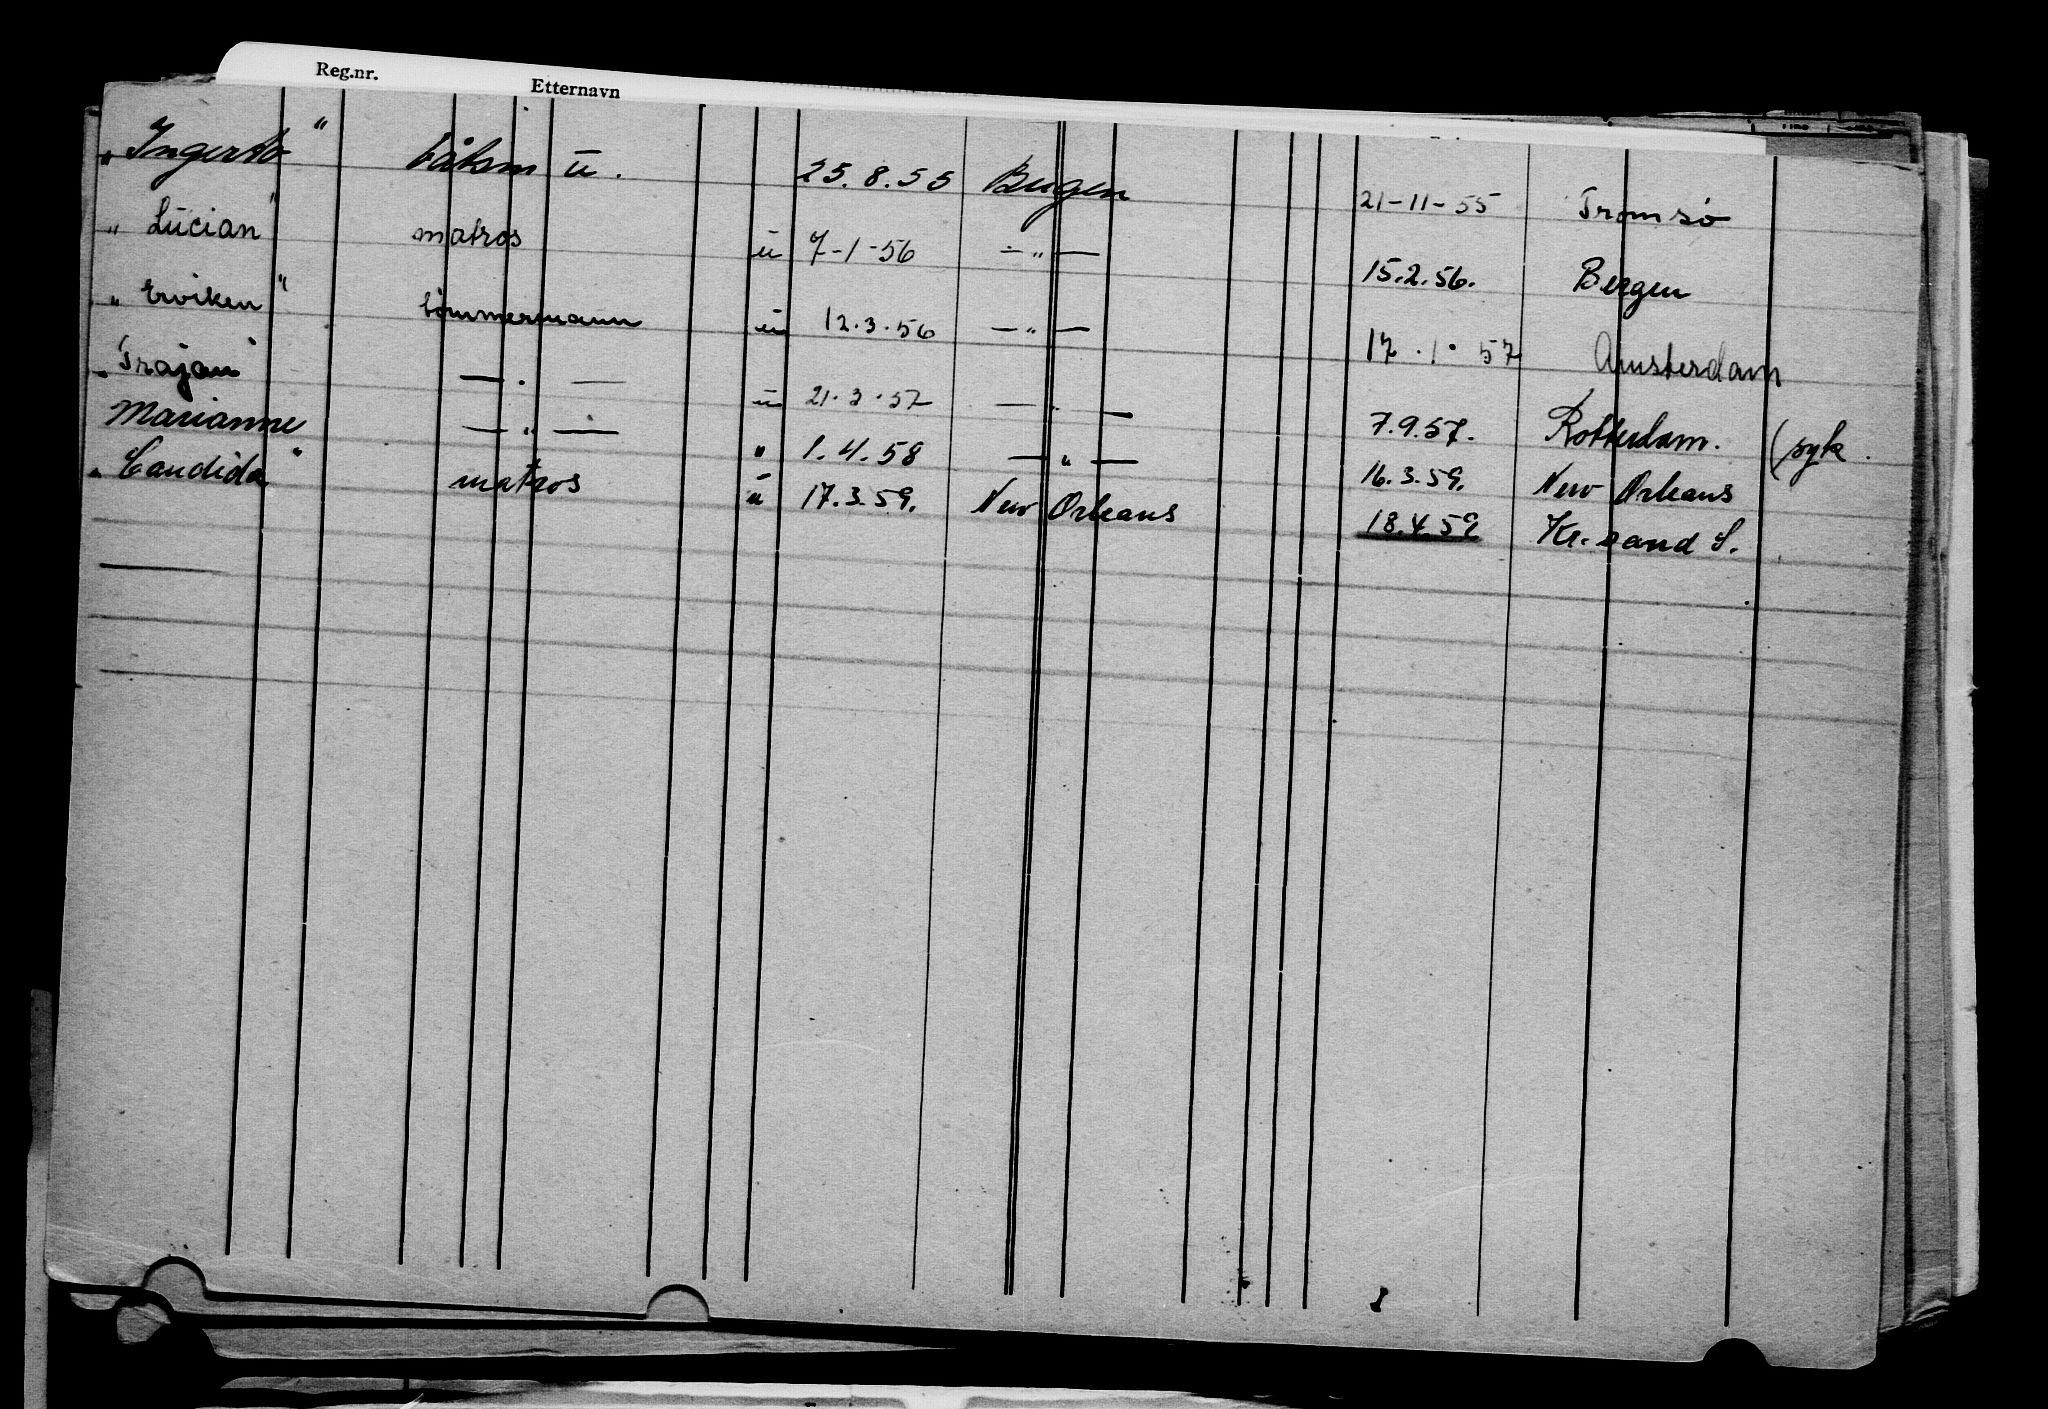 Reg.nr. Etternavn
"Ingertо" båtsm u. 25.8.55 Bergen 21-11-55 Tromsø
"Lucian" matros u 7-1-56 —"— 15.2.56. Bergen
"Erviken" tømmermann u 12.3.56 —"— 17.1.57 Amsterdam
"Trajan" —"— u 21.3.57 —"— 7.9.57. Rotterdam. (syk.
Marianne —"— " 1.4.58 —"— 16.3.59. New Orleans
"Candida" matros u 17.3.59. New Orleans 18.4.59 Kr. sand S.